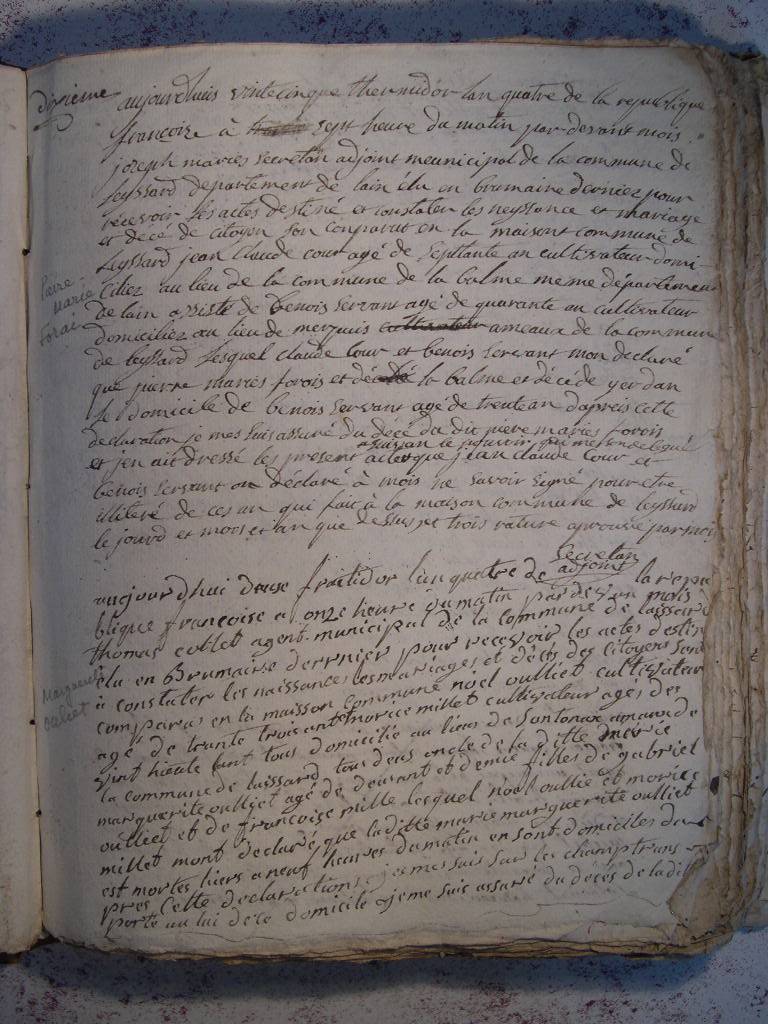 dixieme aujourdhuis vintecinque thermidor lan quatre de la republique
francoise à sept heure du matin par devant mois
joseph maries secretan adjoint meunicipal de la commune de
leyssard departement de lain élu en brumaire dernier pour
récevoir les actes destiné et constater les neyssance et mariage
et décé de citoyen son conparut en la maisont commune de
Leyssard jean claude cour agé de septante an cultivateur domi-
ciliez au lieu de la commune de la balme meme departement
de lain assisté de benois servant agé de quarante an cultivateur
domiciliez au lieu de merpuis cultivateur ameaux de la commune
de leyssard lesquel claude cour et benois servant mon declaré
que pierre maries forois et la balme et décéde yer dan
le domicile de benois servant agé de trente an dapreis cette
declaration je mes suis assuré du décé du dit piere maries forois
et jen ait dressé les present acte que jean claude cour et
benois servant on déclaré à mois ne savoir signé pour etre
illiteré de ces an qui fait à la maison commune de leyssard
le jour et mois et an que dessus et trois rature aprouvé par moy
Secretan
adjoint
Pierre
Marie
Forai
aujourdhui deuse fruitidor l'an quatre de la repu
blique francoise a onze heure du matin par devan mois
thomas collet agent municipal de la commune de laissard
élu en Brumaire dernier pour recevoir les actes destin
a constater les naissances les mariages et décés des citoyens sont
comparus en la maisson commune noël oulliet cultivateur
agé de trante trois ant morice millet cultivateur ages de
vint hieute ant tous domicilie au lieus de Sontonax amaux de
la commune de laissard tous deus oncle de la ditte marie
marguerite oulliet agé de deus ant et demie filles de gabriel
oulliet et de francoise mille lesquel noel oullie et morice
millet mont declaré que laditte marie marguerite oulliet
est mortes hiers a neuf heures du matin en sont domiciles da
pres cette declarations je me suis sur le champ trans
porté au lui de ce domicile je me suis assuré du décés de ladit
Marguerite
Oulliet